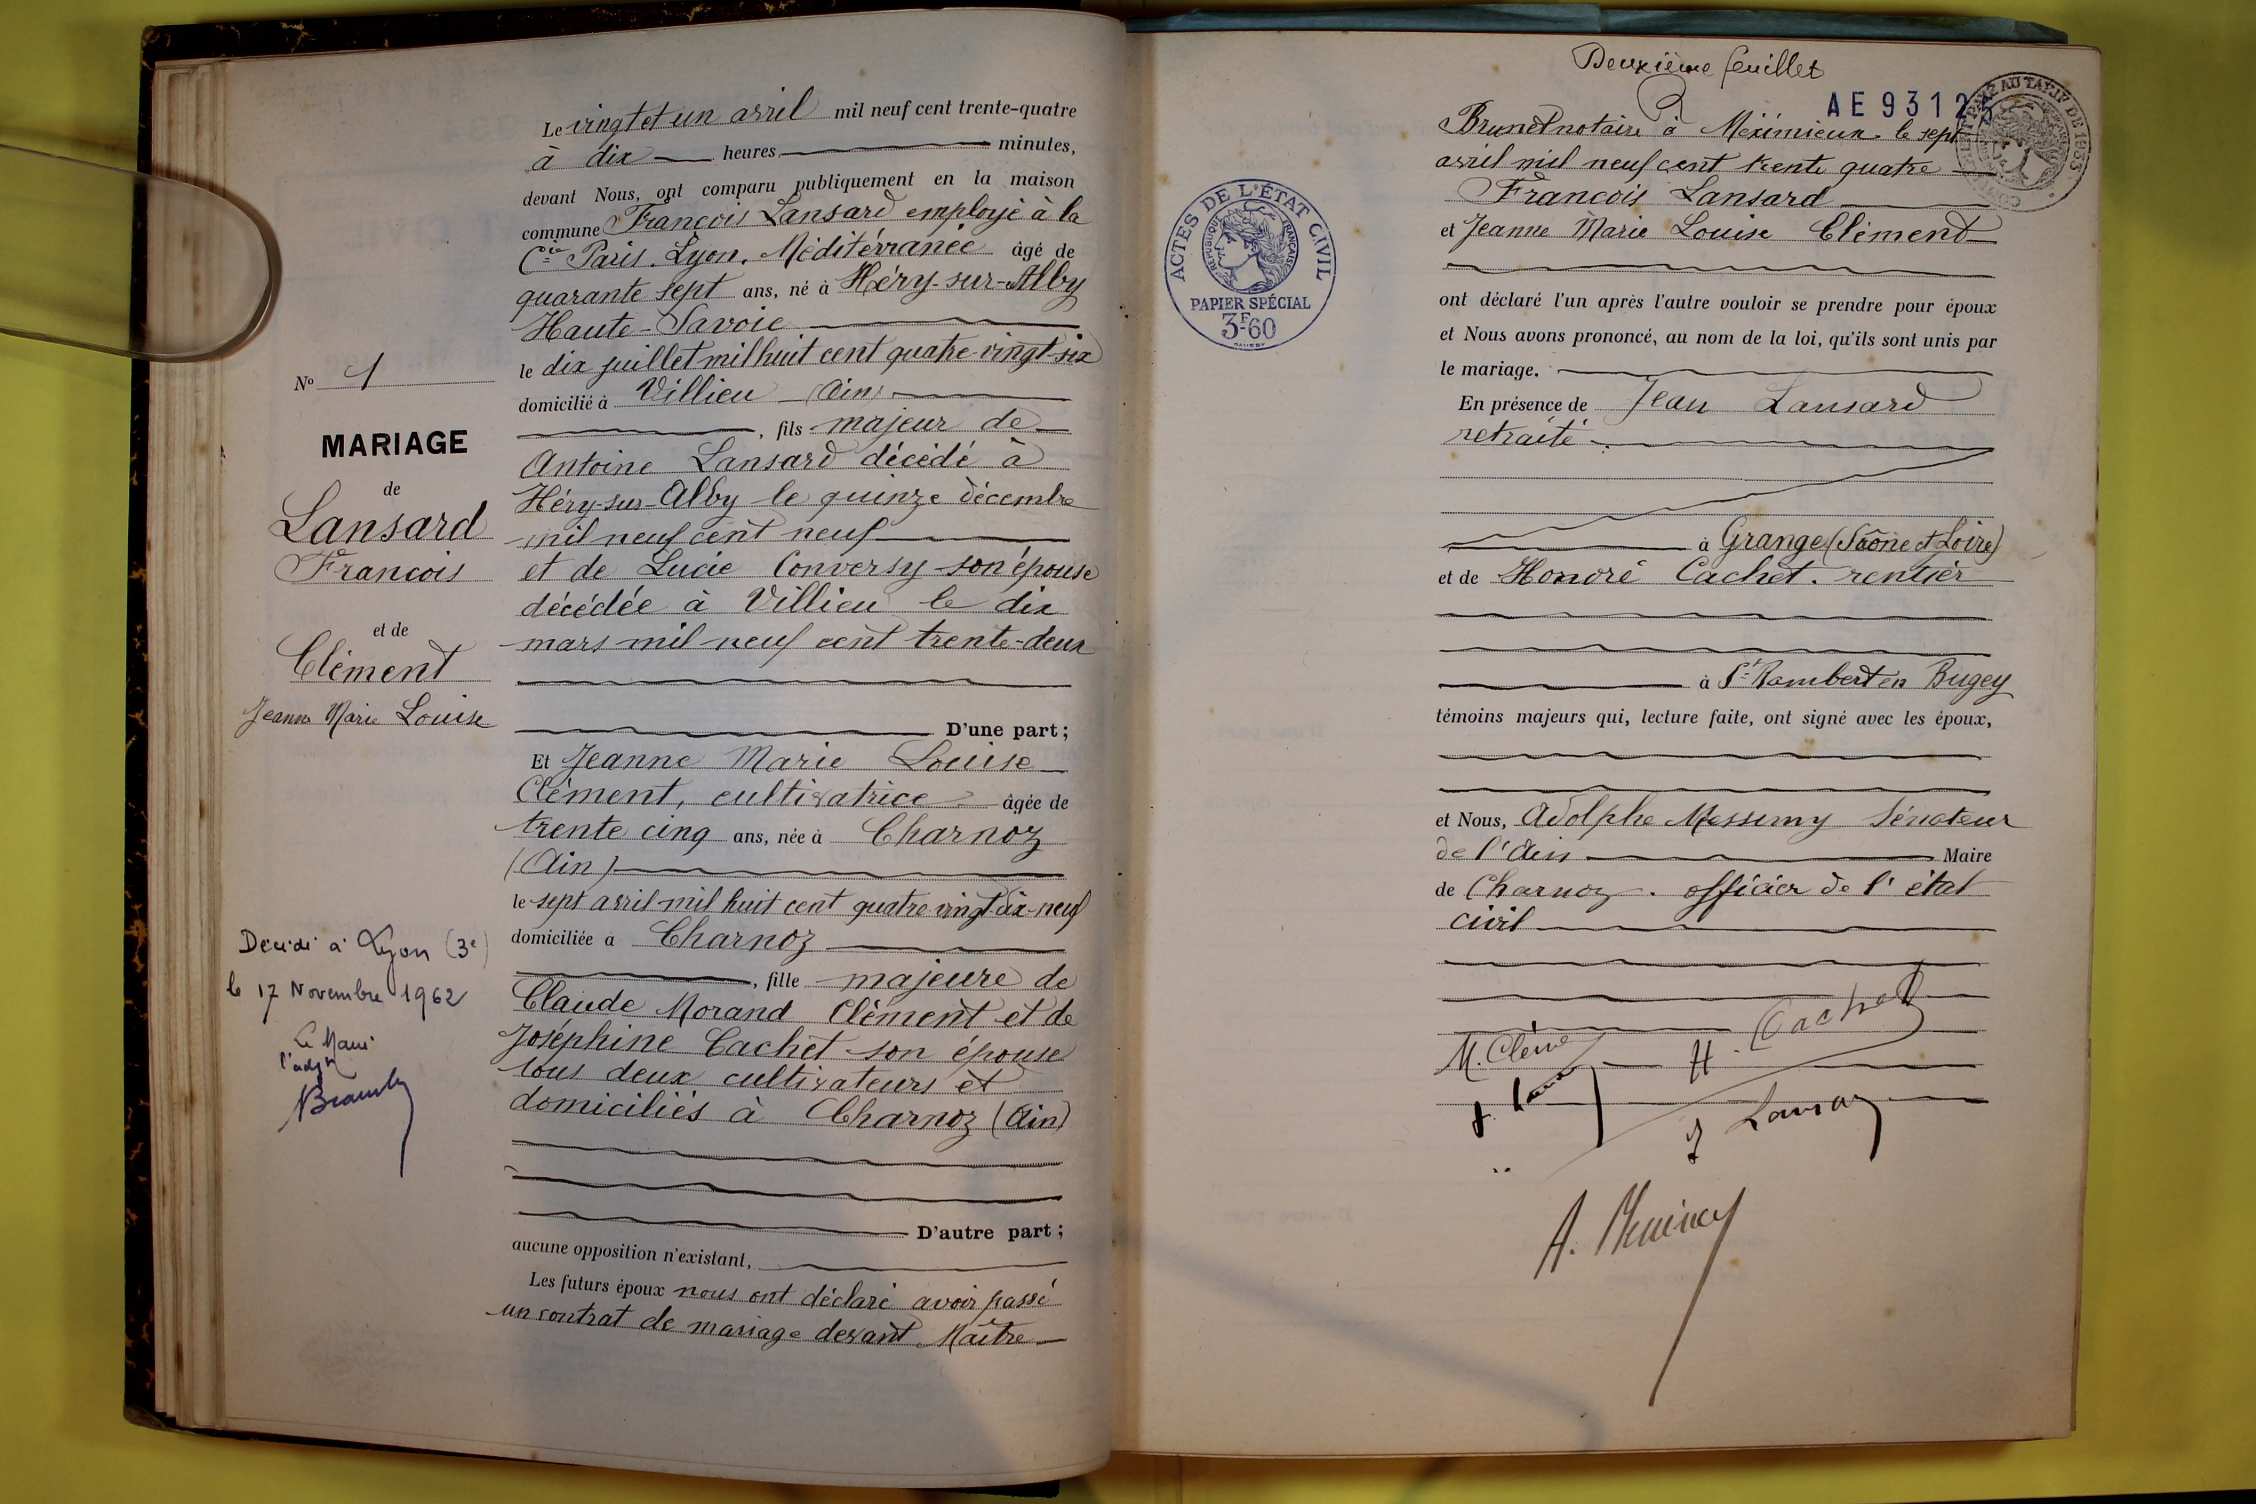 Le vingt et un avril mil neuf cent trente-quatre
à dix heures, minutes,
devant Nous, ont comparu publiquement en la maison
commune François Lansard employé à la
Cie Paris. Lyon. Méditérranée âgé de
quarante sept ans, né à Héry-sur-Alby
Haute-Savoie
le dix juillet mil huit cent quatre-vingt-six
domicilié à Villieu (Ain)
, fils majeur de
Antoine Lansard décédé à
Héry-sur-Alby le quinze décembre
mil neuf cent neuf
et de Lucie Conversy son épouse
décédée à Villieu le dix
mars mil neuf cent trente-deux
D'une part;
Et Jeanne Marie Louise
Clément, cultivatrice âgée de
trente cinq ans, née à Charnoz
(Ain)
le sept avril mil huit cent quatre vingt dix-neuf
domiciliée à Charnoz
, fille majeure de
Claude Morand Clément et de
Joséphine Cachet son épouse
tous deux cultivateurs et
domiciliés à Charnoz (Ain)
D'autre part;
aucune opposition n'existant,
Les futurs époux nous ont déclaré avoir passé
un contrat de mariage devant Maître
No 1
MARIAGE
de
Lansard
François
et de
Clément
Jeanne Marie Louise
Décédé à Lyon (3e)
le 17 Novembre 1962
Le Maire
l'adjt
Deuxième feuillet
AE 9312
Brunet notaire à Méximieux le sept
avril mil neuf cent trente quatre
François Lansard
et Jeanne Marie Louise Clément
ont déclaré l'un après l'autre vouloir se prendre pour époux
et Nous avons prononcé, au nom de la loi, qu'ils sont unis par
le mariage.
En présence de Jean Lansard
retraité
à Grange (Saône et Loire)
et de Honoré Cachet. rentier
à St Rambert en Bugey
témoins majeurs qui, lecture faite, ont signé avec les époux,
et Nous, Adolphe Messimy Sénateur
de l'Ain Maire
de Charnoz. officier de l'état
civil
H. Cachet
ACTES DE L'ÉTAT CIVIL
RÉPUBLIQUE FRANÇAISE
PAPIER SPÉCIAL
3F60